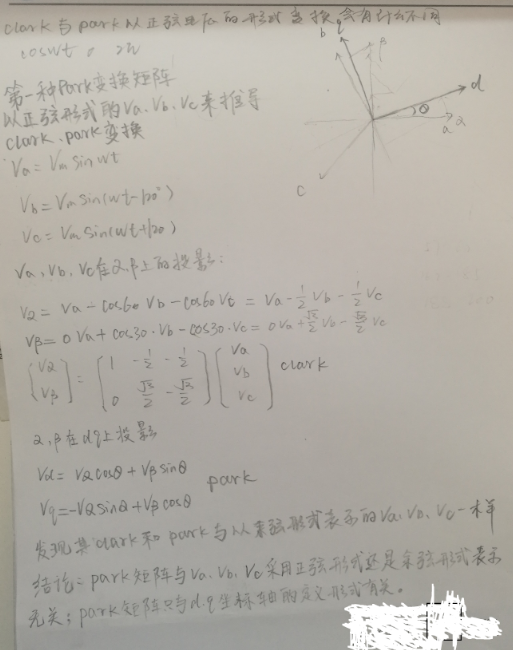 clark 与 park 以正弦 的形式变换,会有什么不同
coswt
第一种Park变换矩阵
以正弦形式的Va、Vb、Vc来推导
clark、park变换
Va = Vm sin wt
Vb = Vm sin(wt-120°)
Vc = Vm sin(wt+120)
Va、Vb、Vc在α,β上的投影:
Vα = Va - cos60 Vb - cos60 Vc = Va - 1/2 Vb - 1/2 Vc
Vβ = 0 Va + cos30·Vb - cos30·Vc = 0 Va + √3/2 Vb - √3/2 Vc
[Vα Vβ] = [1 -1/2 -1/2
0 √3/2 -√3/2] [Va Vb Vc] clark
α,β在dq上投影
Vd = Vα cosθ + Vβ sinθ
park
Vq = -Vα sinθ + Vβ cosθ
发现其clark和park与以余弦形式表示的Va、Vb、Vc一样
结论:park矩阵与Va、Vb、Vc采用正弦形式还是余弦形式表示
无关;park矩阵只与d,q坐标轴的定义形式有关。
b
q
β
d
θ
a
α
c